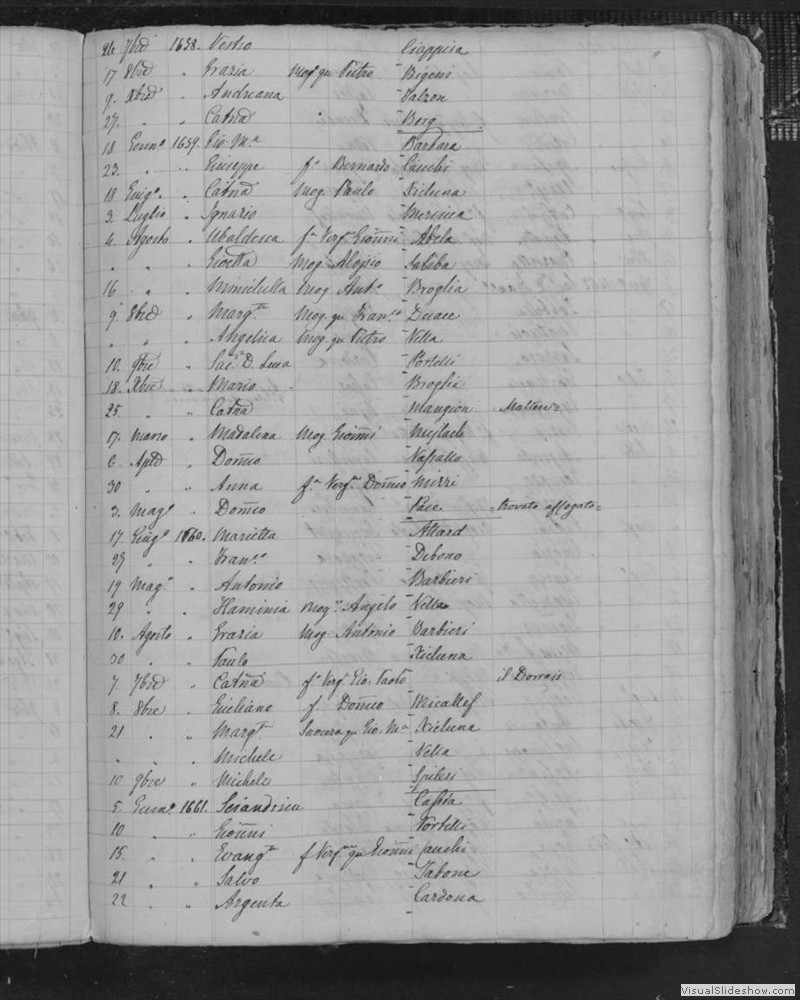 26 7bre 1658. Vestro Ciappira
17 8bre " Grazia Mog. qu Pietro Bigeni
9. Xbre " Andreana Falzon
27. " " Catna " Borg
18 Genn° 1659. Pio M.a Barbara
23. " " Giuseppe f° Bernardo Cauchi
18 Giug° " Catna Mog Paulo Xicluna
3. Luglio " Ignazio
4. Agosto " Ubaldesca f.a Verg.e Gionni Abela
" " " Gioetta Mog. Aloisio Saliba
16 " " Minichella Mog Ant.o Broglia
9. 8bre " Marg.ta Mog. qu Fran.co Duace
" " " Angelica Mog. qu Pietro Vella
10. 9bre " Sac. D. Luca Portelli
18. Xbre " Mario Broglia
25 " " Catna Mangion Maltese
17. Marzo " Madalena Mog Gionni Mejlach
6. Aple " Domco Vassallo
30 " " Anna f.a Verg.e Domco Mizzi
3. Mag° " Domco Pace = trovato affogato =
17 Giug° 1660. Marietta Attard
27 " " Fran.co Debono
19 Mag° " Antonio Barbieri
29 " " Flaminia Mog. Angelo Vella
10. Agosto " Grazia Mog Antonio Barbieri
30 " " Paulo Xicluna
7. 7bre " Catna f.a Verg. Gio. Paolo
8. 8bre " Giuliano f. Domco Micallef
21 " " Marg.ta Suocera qu Gio. M.a Xicluna
" " " Michele Vella
10 9bre " Michele Spiteri
5. Genn° 1661. Cassia
10 " " Gionni Portelli
15. " " Evang.ta f Verg.e qu Gionni Cauchi
21 " " Salvo Tabone
22 " " Argenta Cardona
VisualSlideshow.com